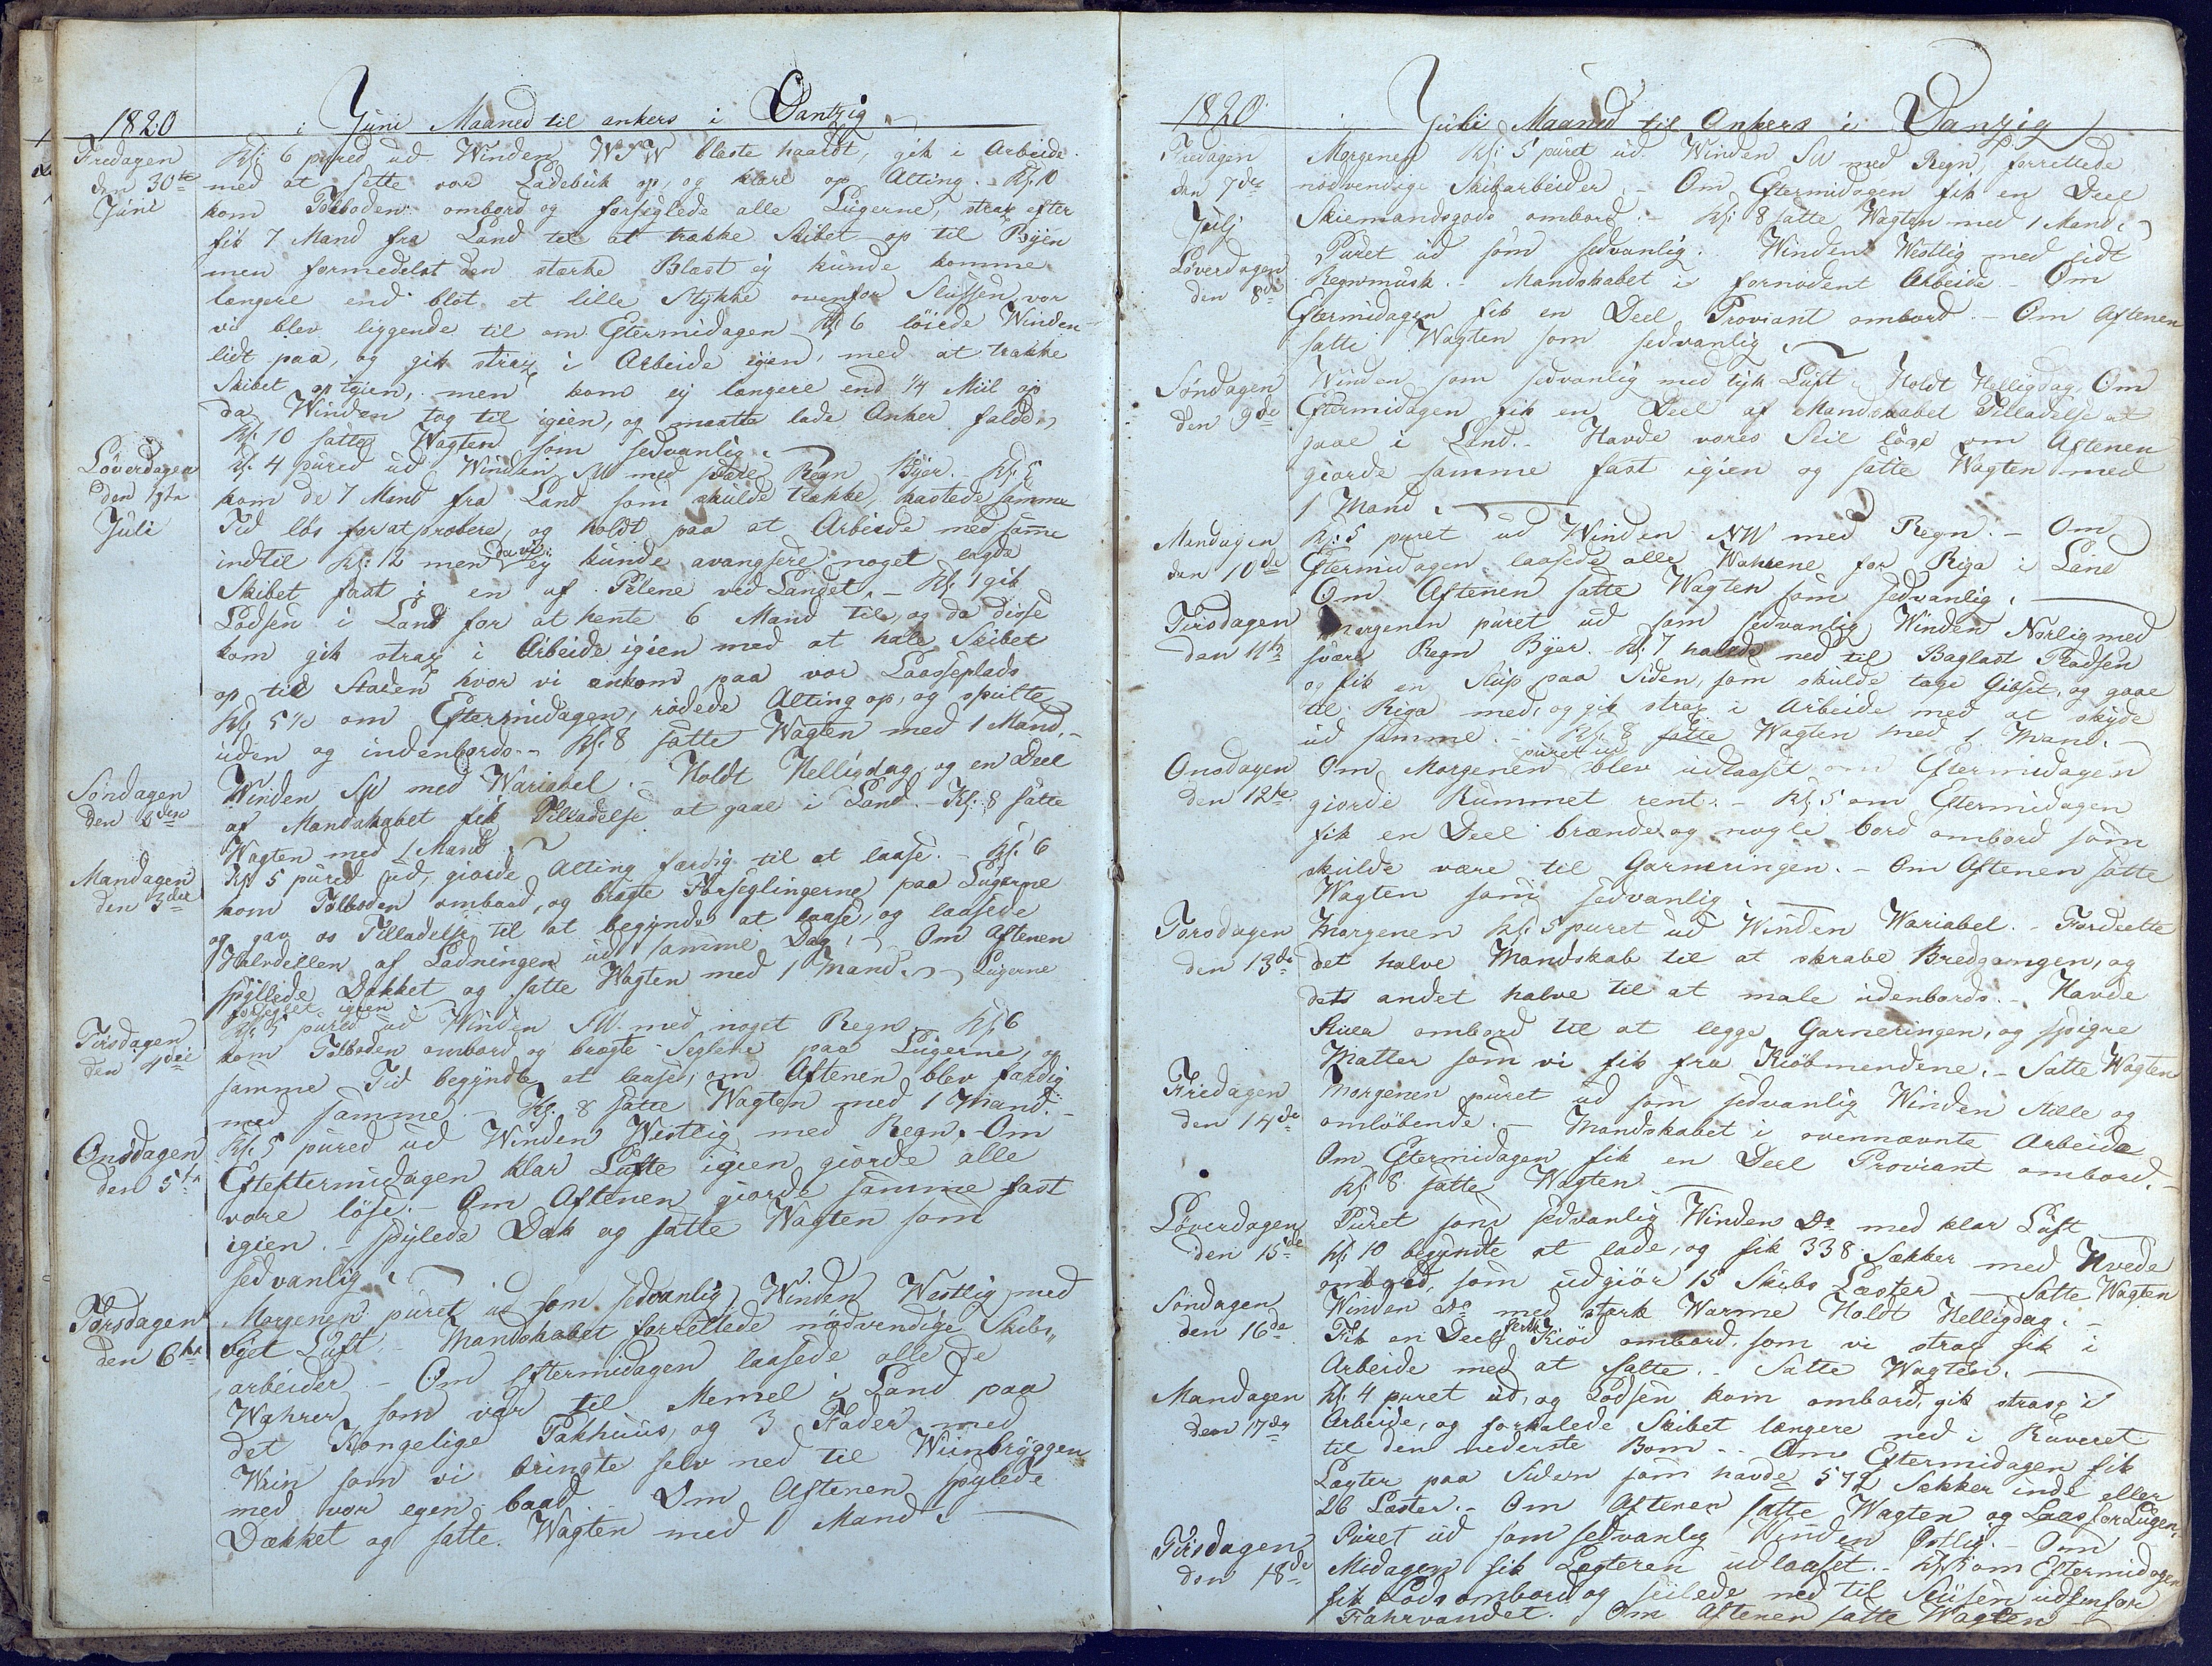 1820 i Juni Maaned til ankers i Dantzig
Fredagen den 30te Juni
Kl: 6 pured ud Winden WNW blæste haardt, gik i Arbeide
med at sette vor Ladebuk op, og klare op Alting. Kl: 10
kom Tolboden ombord og forseglede alle Lugerne, strax efter
fik 7 Mand fra Land til at trække Skibet op til Byen
men formedelst den stærke Blæst ej kunde komme
længere end blot et lille Stykke ovenfor Slussen, vor
vi blev liggende til om Eftermidagen Kl 6 löiede Winden
lidt paa, og gik strax i Arbeide igien, med at trække
Skibet op igien, men kom ej længere end 1/4 Miil op
da Winden tog til igien, og maatte lade Anker falde,
Kl: 10 satte Wagten som sedvanlig.
Löverdagen den 1ste Juli
Kl. 4 pured ud Winden SW med svære Regn Byer. Kl: 5
kom de 7 Mand fra Land som skulde trække kastede samme
Tid lös for at probere, og holdt paa at Arbeide med samme
indtil Kl: 12 men da vi ej kunde avangsere noget lagde
Skibet fast i en af Pælene ved Landet, – Kl 1 gik
Lodsen i Land for at hente 6 Mand til, og da disse
kom gik strax i Arbeide igien med at hale Skibet
op til Staden hvor vi ankom paa vor Laasseplads
Kl 5 1/2 om Eftermidagen, rödede Alting op, og spulte
uden og indenbords. – Kl: 8 satte Wagten med 1 Mand. –
Söndagen den 2den
Winden SW med Wariabel. – Holdt Helligdag, og en Deel
af Mandskabet fik Tilladelse at gaae i Land. – Kl: 8 satte
Wagten med 1 Mand.
Mandagen den 3die
Kl 5 pured ud, giorde Alting færdig til at laasse. – Kl: 6
kom Tolboden ombord, og bragte Forseglingerne paa Lugerne
og gav os Tilladelse til at begynde at laase, og laasede
Halvdellen af Ladningen ud samme Dag. – Om Aftenen
spyllede Dækket og satte Wagten med 1 Mand. – Lugerne
forseglet igien
Tirsdagen den 4die
Kl: 5 pured ud Winden SW. med noget Regn. Kl 6
kom Tolboden ombord og bragte Seglene paa Lugerne, og
samme Tid begyndte at laase, om Aftenen blev færdig
med samme. – Kl. 8 satte Wagten med 1 Mand. –
Onsdagen den 5te
Kl: 5 pured ud Winden Westlig med Regn. – Om
Efteftermidagen klar Lufte igien giorde alle
vore löse. – Om Aftenen giorde samme fast
igien. – Spylede Dæk og satte Wagten som
sedvanlig.
Torsdagen den 6te
Morgenen puret ud som sedvanlig Winden Westlig med
tyct Luft. – Mandskabet forrettede nödvendige Skibs„
arbeider – Om Eftermidagen laasede alle de
Wahrer som var til Memel i Land paa
det Kongelige Pakhuus, og 3 Fader med
Wiin som vi bringte selv ned til Wiinbryggen
med vor egen baad. – Om Aftenen spylede
Dækket og satte Wagten med 1 Mand.
1820 Juli Maaned til Ankers i Danzig
Fredagen den 7de Julj
Morgenen Kl: 5 puret ud Winden SW med Regn, forrettede
nödvendige Skibsarbeider. – Om Eftermidagen fik en Deel
Skiemandsgods ombord. – Kl: 8 satte Wagten med 1 Mand.
Löverdagen den 8de
Puret ud som sedvanlig. Winden Westlig med lidt
Regnmusk. – Mandskabet i fornödent Arbeide – Om
Eftermidagen fik en Deel Proviant ombord. – Om Aftenen
satte Wagten som sedvanlig.
Söndagen den 9de
Winden som sedvanlig med tyk Luft. Holdt Helligdag. Om
Eftermidagen fik en Deel af Mandskabet Tilladelse at
gaae i Land. – Havde vores Seil löse om Aftenen
giorde samme fast igien og satte Wagten med
1 Mand.
Mandagen den 10de
Kl: 5 puret ud Winden NW med Regn. – Om
Eftermidagen laasede alle Wahrene for Riga i Land
Om Aftenen satte Wagten som sedvanlig.
Tirsdagen den 11te
Morgenen puret ud som sedvanlig Winden Norlig med
svære Regn Byer. – Kl: 7 halede ned til Baglast Pladsen
og fik en Slup paa Siden, som skulde tage Gibset, og gaae
til Riga med, og gik strax i Arbeide med at skyde
ud samme. – Kl. 8 satte Wagten med 1 Mand. –
Onsdagen den 12te
Om Morgenen puret ud blev udlaaset om Eftermidagen
giorde Rummet rent. – Kl 5 om Eftermidagen
fik en Deel brænde og nogle bord ombord som
skulde være til Garneringen. – Om Aftenen satte
Wagten som sedvanlig
Torsdagen den 13de
Morgenen Kl: 5 puret ud Winden Wariabel. – Fordeelte
det halve Mandskab til at skrabe Bredgangen, og
dets andet halve til at male udenbords. – Havde
Stuer ombord til at legge Garneringen, og spigre
Matter som vi fik fra Kiöbmendene. – Satte Wagten
Fredagen den 14de
Morgenen puret ud som sedvanlig Winden stille og
omlöbende. – Mandskabet i ovennævnte Arbeide
Om Eftermidagen fik en Deel Proviant ombord. –
Kl: 8 satte Wagten
Löverdagen den 15de
Puret som sedvanlig Winden Do med klar Luft
Kl: 10 begyndte at lade, og fik 338 Sækker med Hvede
ombord, som udgiör 15 Skibs Læster – Satte Wagten
Söndagen den 16de
Winden Do med stærk Warme Holdt Helligdag. –
Fik en Deel fersk Kiöd ombord, som vi strax fik i
Arbeide med at salte. – Satte Wagten.
Mandagen den 17de
Kl: 4 puret ud, og Lodsen kom ombord, gik strax i
Arbeide, og forhalede Skibet længere ned i Raveret
til den nederste Bom. – Om Eftermidagen fik
Legter paa Siden som havde 572 Sækker inde eller
26 Læster. – Om Aftenen satte Wagten og Laas for Lugen.
Tirsdagen den 18de
Puret ud som sedvanlig Winden Östlig. – Om
Midagen fik Legteren udlaaset. – Kl: 5 om Eftermidagen
fik Lods ombord og seilede ned til Slusen udenfor
Fahrvandet. Om Aftenen satte Wagten